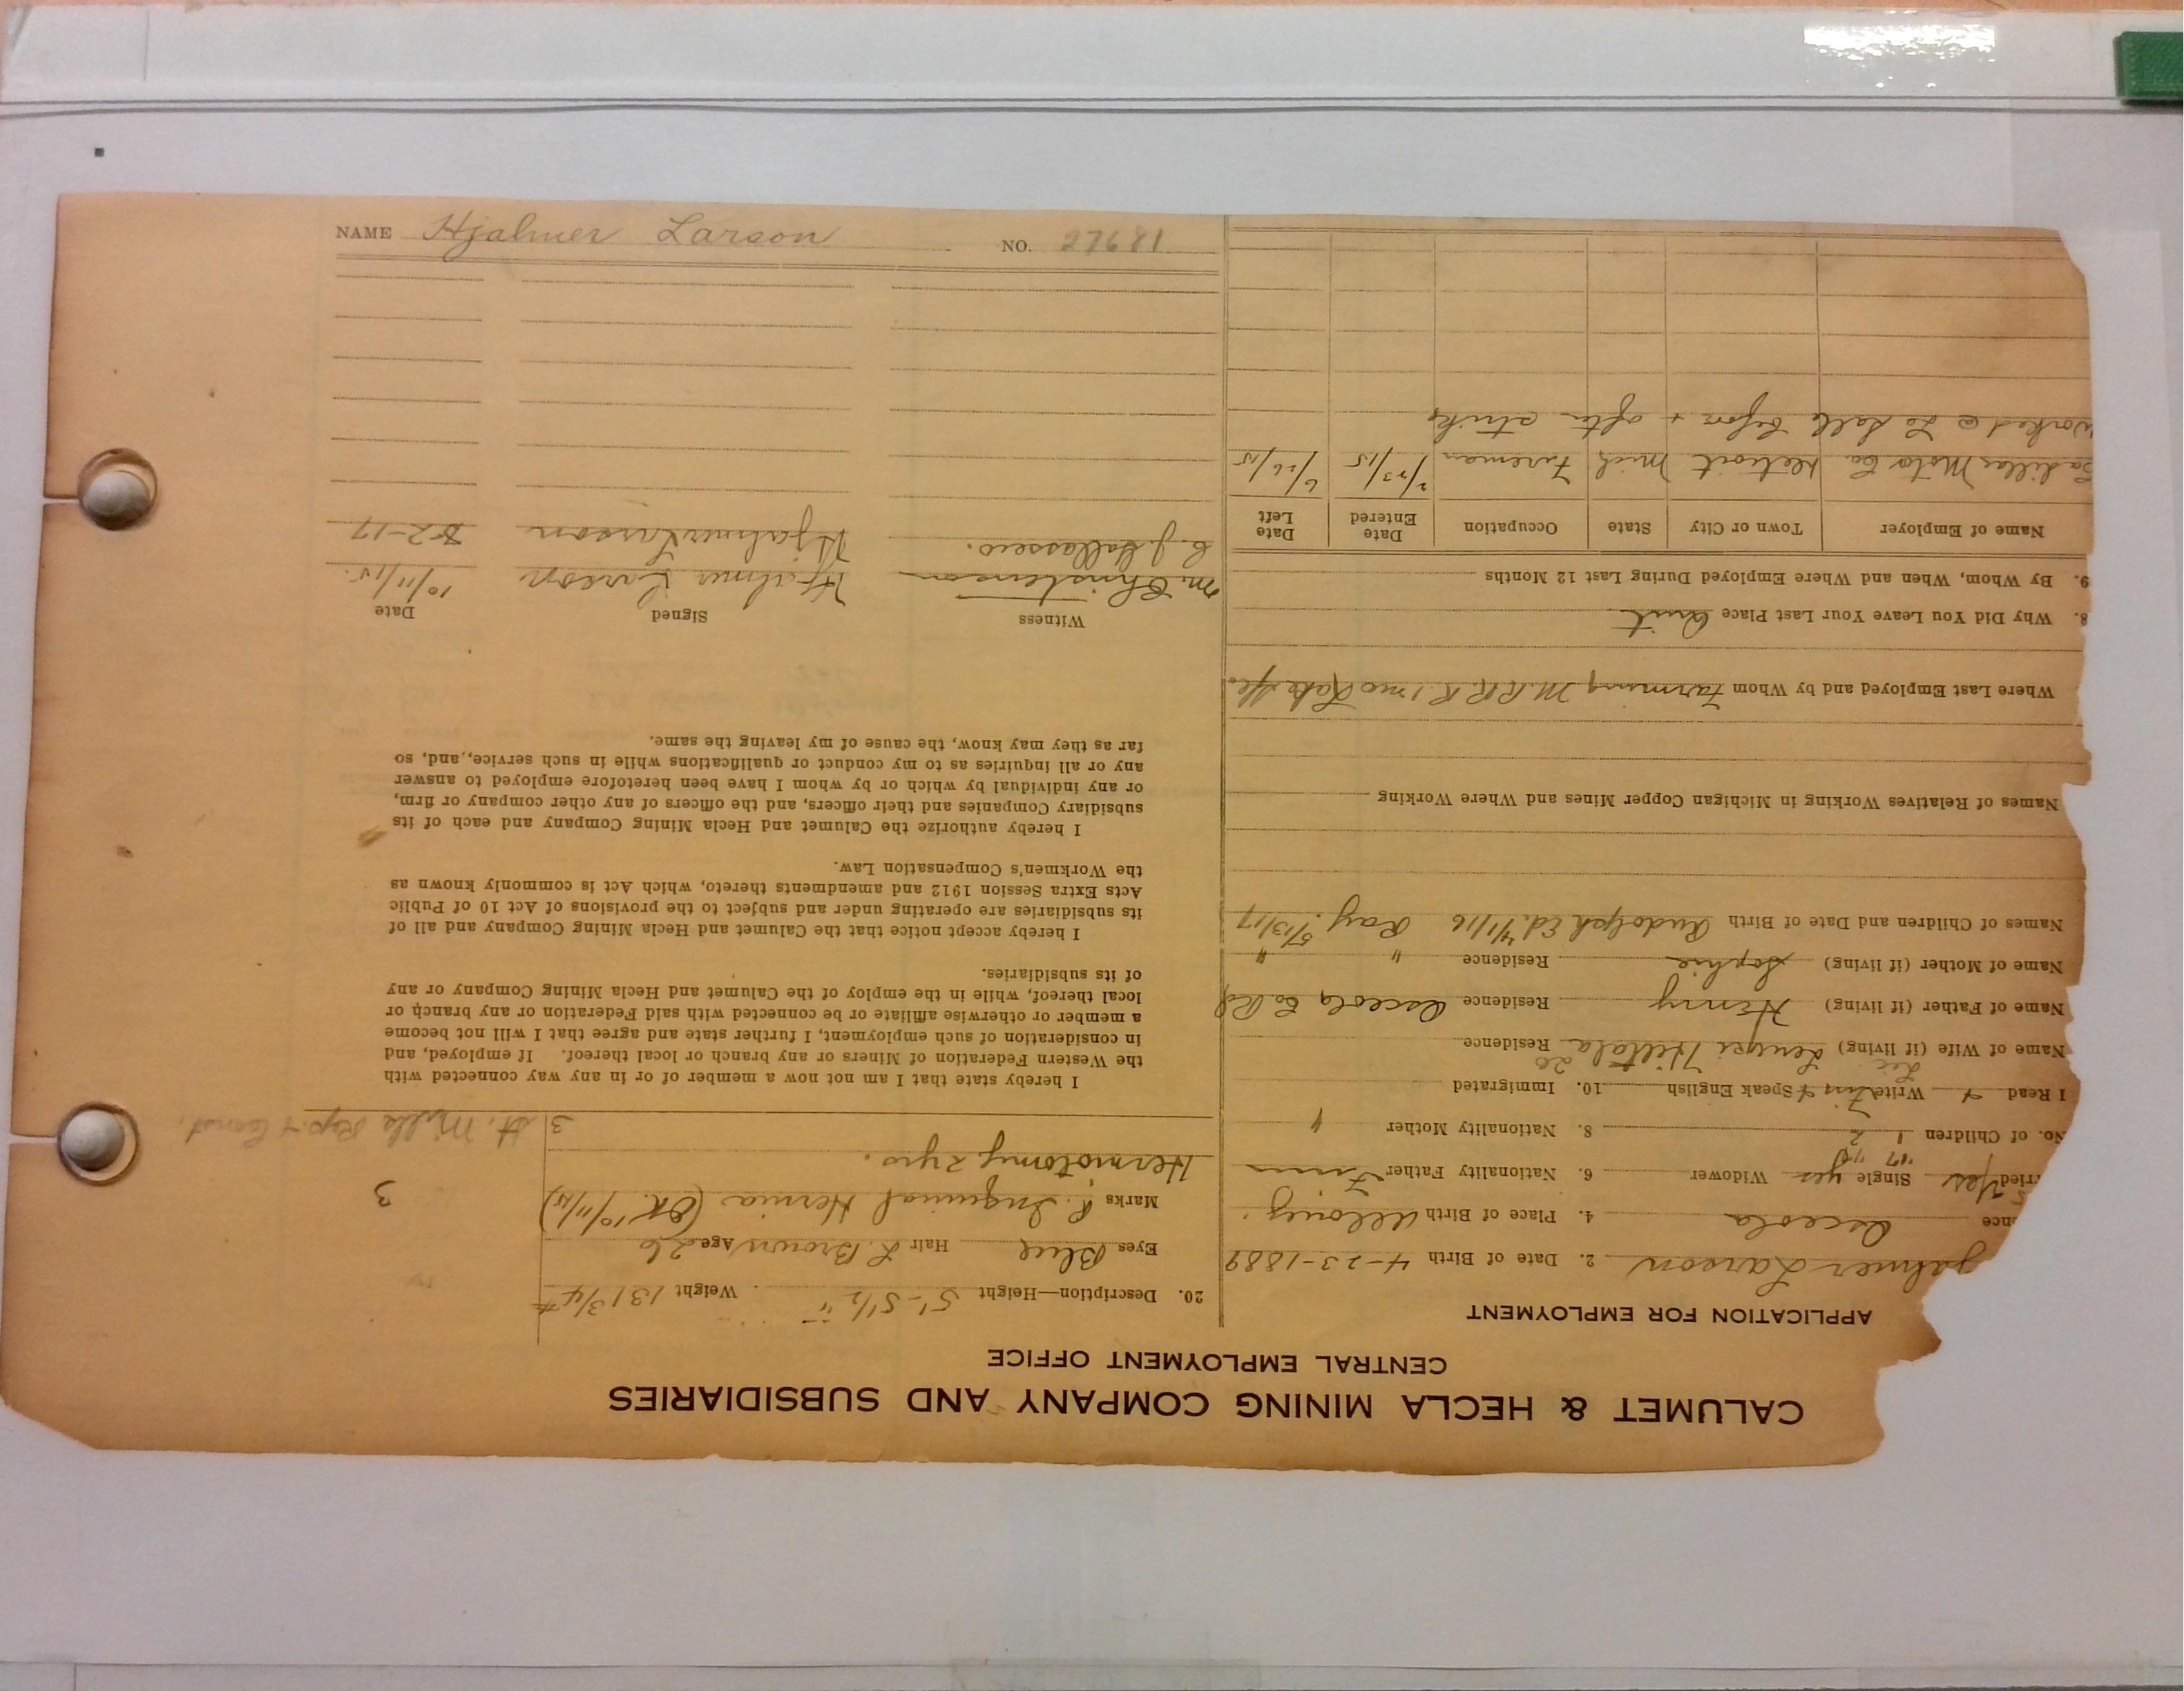 CALUMET & HECLA MINING COMPANY AND SUBSIDIARIES
CENTRAL EMPLOYMENT OFFICE
APPLICATION FOR EMPLOYMENT
jalmer Larson 2. Date of Birth 4-23-1889
nce Osceola 4. Place of Birth Allouez.
ried Yes Single yes Widower 6. Nationality Father Finn
"17
No. of Children 1 2 8. Nationality Mother "
I Read + Write Fin + Speak English 10. Immigrated
Name of Wife (if living) Residence
Name of Father (if living) Henry Residence Osceola
Name of Mother (if living) Sophie Residence " "
Names of Children and Date of Birth Rudolph Ed. 4/1/16 Ray. 5/13/17
Names of Relatives Working in Michigan Copper Mines and Where Working
Where Last Employed and by Whom Farming
8. Why Did You Leave Your Last Place Quit
9. By Whom, When and Where Employed During Last 12 Months
Name of Employer Town or City State Occupation Date Entered Date Left
adillac Motor Co. Detroit Mich Fireman 2/23/15 6/26/15
worked @ La Salle before + after strike
20. Description—Height 5'-5 1/2" Weight 131 3/4 #
Eyes Blue Hair L. Brown Age 26
Marks R. Inguinal Hernia (OK. 10/11/15)
Herniotomy 2 yrs.
3
3 St. Mills Rep. & Const.
I hereby state that I am not now a member of or in any way connected with
the Western Federation of Miners or any branch or local thereof. If employed, and
in consideration of such employment, I further state and agree that I will not become
a member or otherwise affiliate or be connected with said Federation or any branch or
local thereof, while in the employ of the Calumet and Hecla Mining Company or any
of its subsidiaries.
I hereby accept notice that the Calumet and Hecla Mining Company and all of
its subsidiaries are operating under and subject to the provisions of Act 10 of Public
Acts Extra Session 1912 and amendments thereto, which Act is commonly known as
the Workmen's Compensation Law.
I hereby authorize the Calumet and Hecla Mining Company and each of its
subsidiary Companies and their officers, and the officers of any other company or firm,
or any individual by which or by whom I have been heretofore employed to answer
any or all inquiries as to my conduct or qualifications while in such service, and, so
far as they may know, the cause of my leaving the same.
Witness Signed Date
M. Christenson Hjalmer Larson 10/11/15.
Hjalmer Larson
NAME Hjalmer Larson NO. 27681